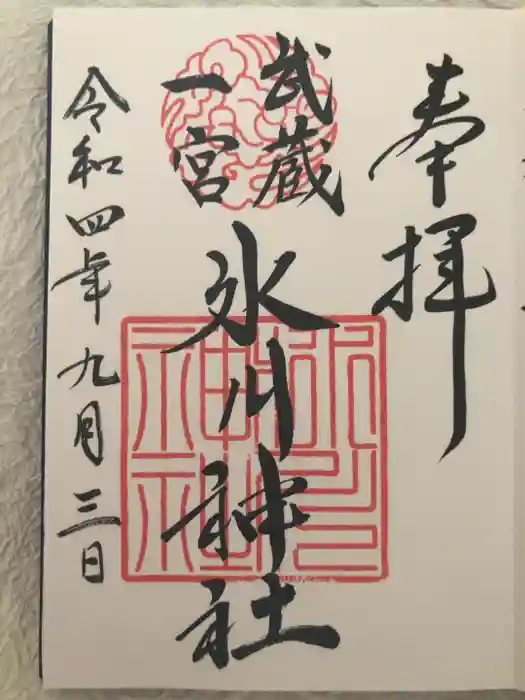 奉拝
武蔵
一宮
氷川神社
令和四年九月三日
氷川
神社